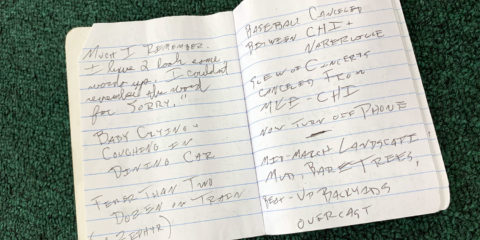 Much I Remember.
I have 2 look some
words up. I couldn't
remember the word
for SORRY."
BABY CRYING -
COUGHING IN
DINING CAR
FEWER THAN TWO
DOZEN ON TRAIN
ZEPHYR)
BASEBALL CANCELED
BETWEEN CHI +
SLEW OF CONCERTS
CANCELED FROM
MKE - CHI
NOW TURN OFF PHONE
MID-MARCH LANDSCAPE:
MUD, BARE TREES,
BEAT-UP BACKYARDS
OVERCAST